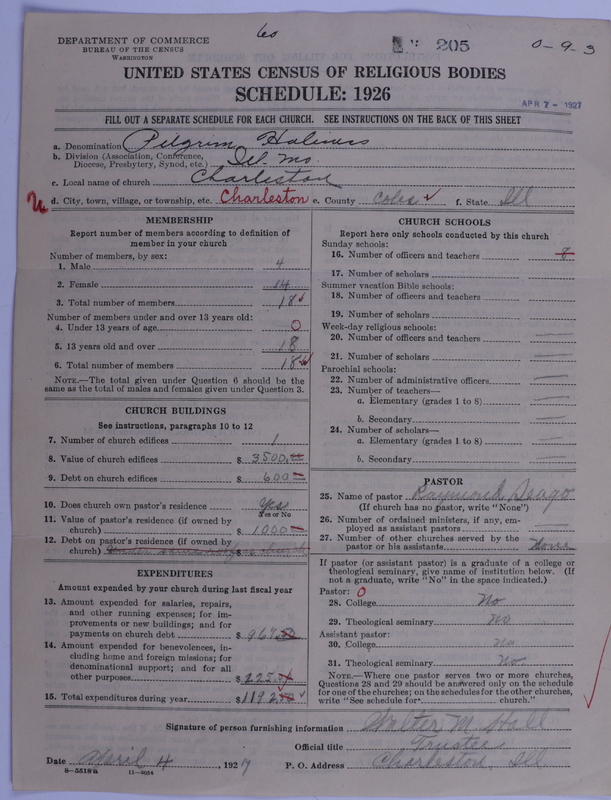 60
DEPARTMENT OF COMMERCE
BUREAU OF THE CENSUS
WASHINGTON
205
0-9-3
UNITED STATES CENSUS OF RELIGIOUS BODIES
SCHEDULE: 1926
APR 7 - 1927
FILL OUT A SEPARATE SCHEDULE FOR EACH CHURCH. SEE INSTRUCTIONS ON THE BACK OF THIS SHEET
a. Denomination Pilgrim Holiness
b. Division (Association, Conference, Diocese, Presbytery, Synod, etc.) Ill. Mo.
c. Local name of church Charleston
d. City, town, village, or township, etc. Charleston e. County Coles ✓ f. State Ill
MEMBERSHIP
Report number of members according to definition of
member in your church
Number of members, by sex:
1. Male 4
2. Female 14
3. Total number of members 18 ✓
Number of members under and over 13 years old:
4. Under 13 years of age 0
5. 13 years old and over 18
6. Total number of members 18 ✓
NOTE.—The total given under Question 6 should be the
same as the total of males and females given under Question 3.
CHURCH BUILDINGS
See instructions, paragraphs 10 to 12
7. Number of church edifices 1
8. Value of church edifices $ 3500.00
9. Debt on church edifices $ 600
10. Does church own pastor's residence Yes
Yes or No
11. Value of pastor's residence (if owned by
church) $ 1000
12. Debt on pastor's residence (if owned by
church) $
EXPENDITURES
Amount expended by your church during last fiscal year
13. Amount expended for salaries, repairs,
and other running expenses; for im-
provements or new buildings; and for
payments on church debt $ 967
14. Amount expended for benevolences, in-
cluding home and foreign missions; for
denominational support; and for all
other purposes $ 225
15. Total expenditures during year $ 1192 ✓
CHURCH SCHOOLS
Report here only schools conducted by this church
Sunday schools:
16. Number of officers and teachers 8
17. Number of scholars
Summer vacation Bible schools:
18. Number of officers and teachers
19. Number of scholars
Week-day religious schools:
20. Number of officers and teachers
21. Number of scholars
Parochial schools:
22. Number of administrative officers
23. Number of teachers—
a. Elementary (grades 1 to 8)
b. Secondary
24. Number of scholars—
a. Elementary (grades 1 to 8)
b. Secondary
PASTOR
25. Name of pastor Raymond
(If church has no pastor, write "None")
26. Number of ordained ministers, if any, em-
ployed as assistant pastors
27. Number of other churches served by the
pastor or his assistants None
If pastor (or assistant pastor) is a graduate of a college or
theological seminary, give name of institution below. (If
not a graduate, write "No" in the space indicated.)
Pastor: 0
28. College No
29. Theological seminary No
Assistant pastor:
30. College No
31. Theological seminary No
NOTE.—Where one pastor serves two or more churches,
Questions 28 and 29 should be answered only on the schedule
for one of the churches; on the schedules for the other churches,
write "See schedule for church."
Signature of person furnishing information Walter M. Hall
Official title Trustee
Date April 4, 1927 P. O. Address Charleston, Ill
8-5518a 11-9054